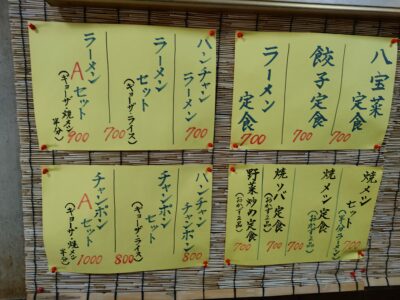 ハンチャンラーメン 700
ラーメンセット (ギョーザ・ライス) 700
ラーメンAセット (ギョーザ・焼メン半分) 900
八宝菜定食
餃子定食 700
ラーメン定食 700
ハンチャンチャンポン 800
チャンポンセット (ギョーザ・ライス) 800
チャンポンAセット (ギョーザ・焼メン半分) 1000
焼メンセット (半分ラーメン) 700
焼メン定食 (おかず3品) 700
焼ソバ定食 (おかず3品) 700
野菜炒め定食 (おかず3品) 700